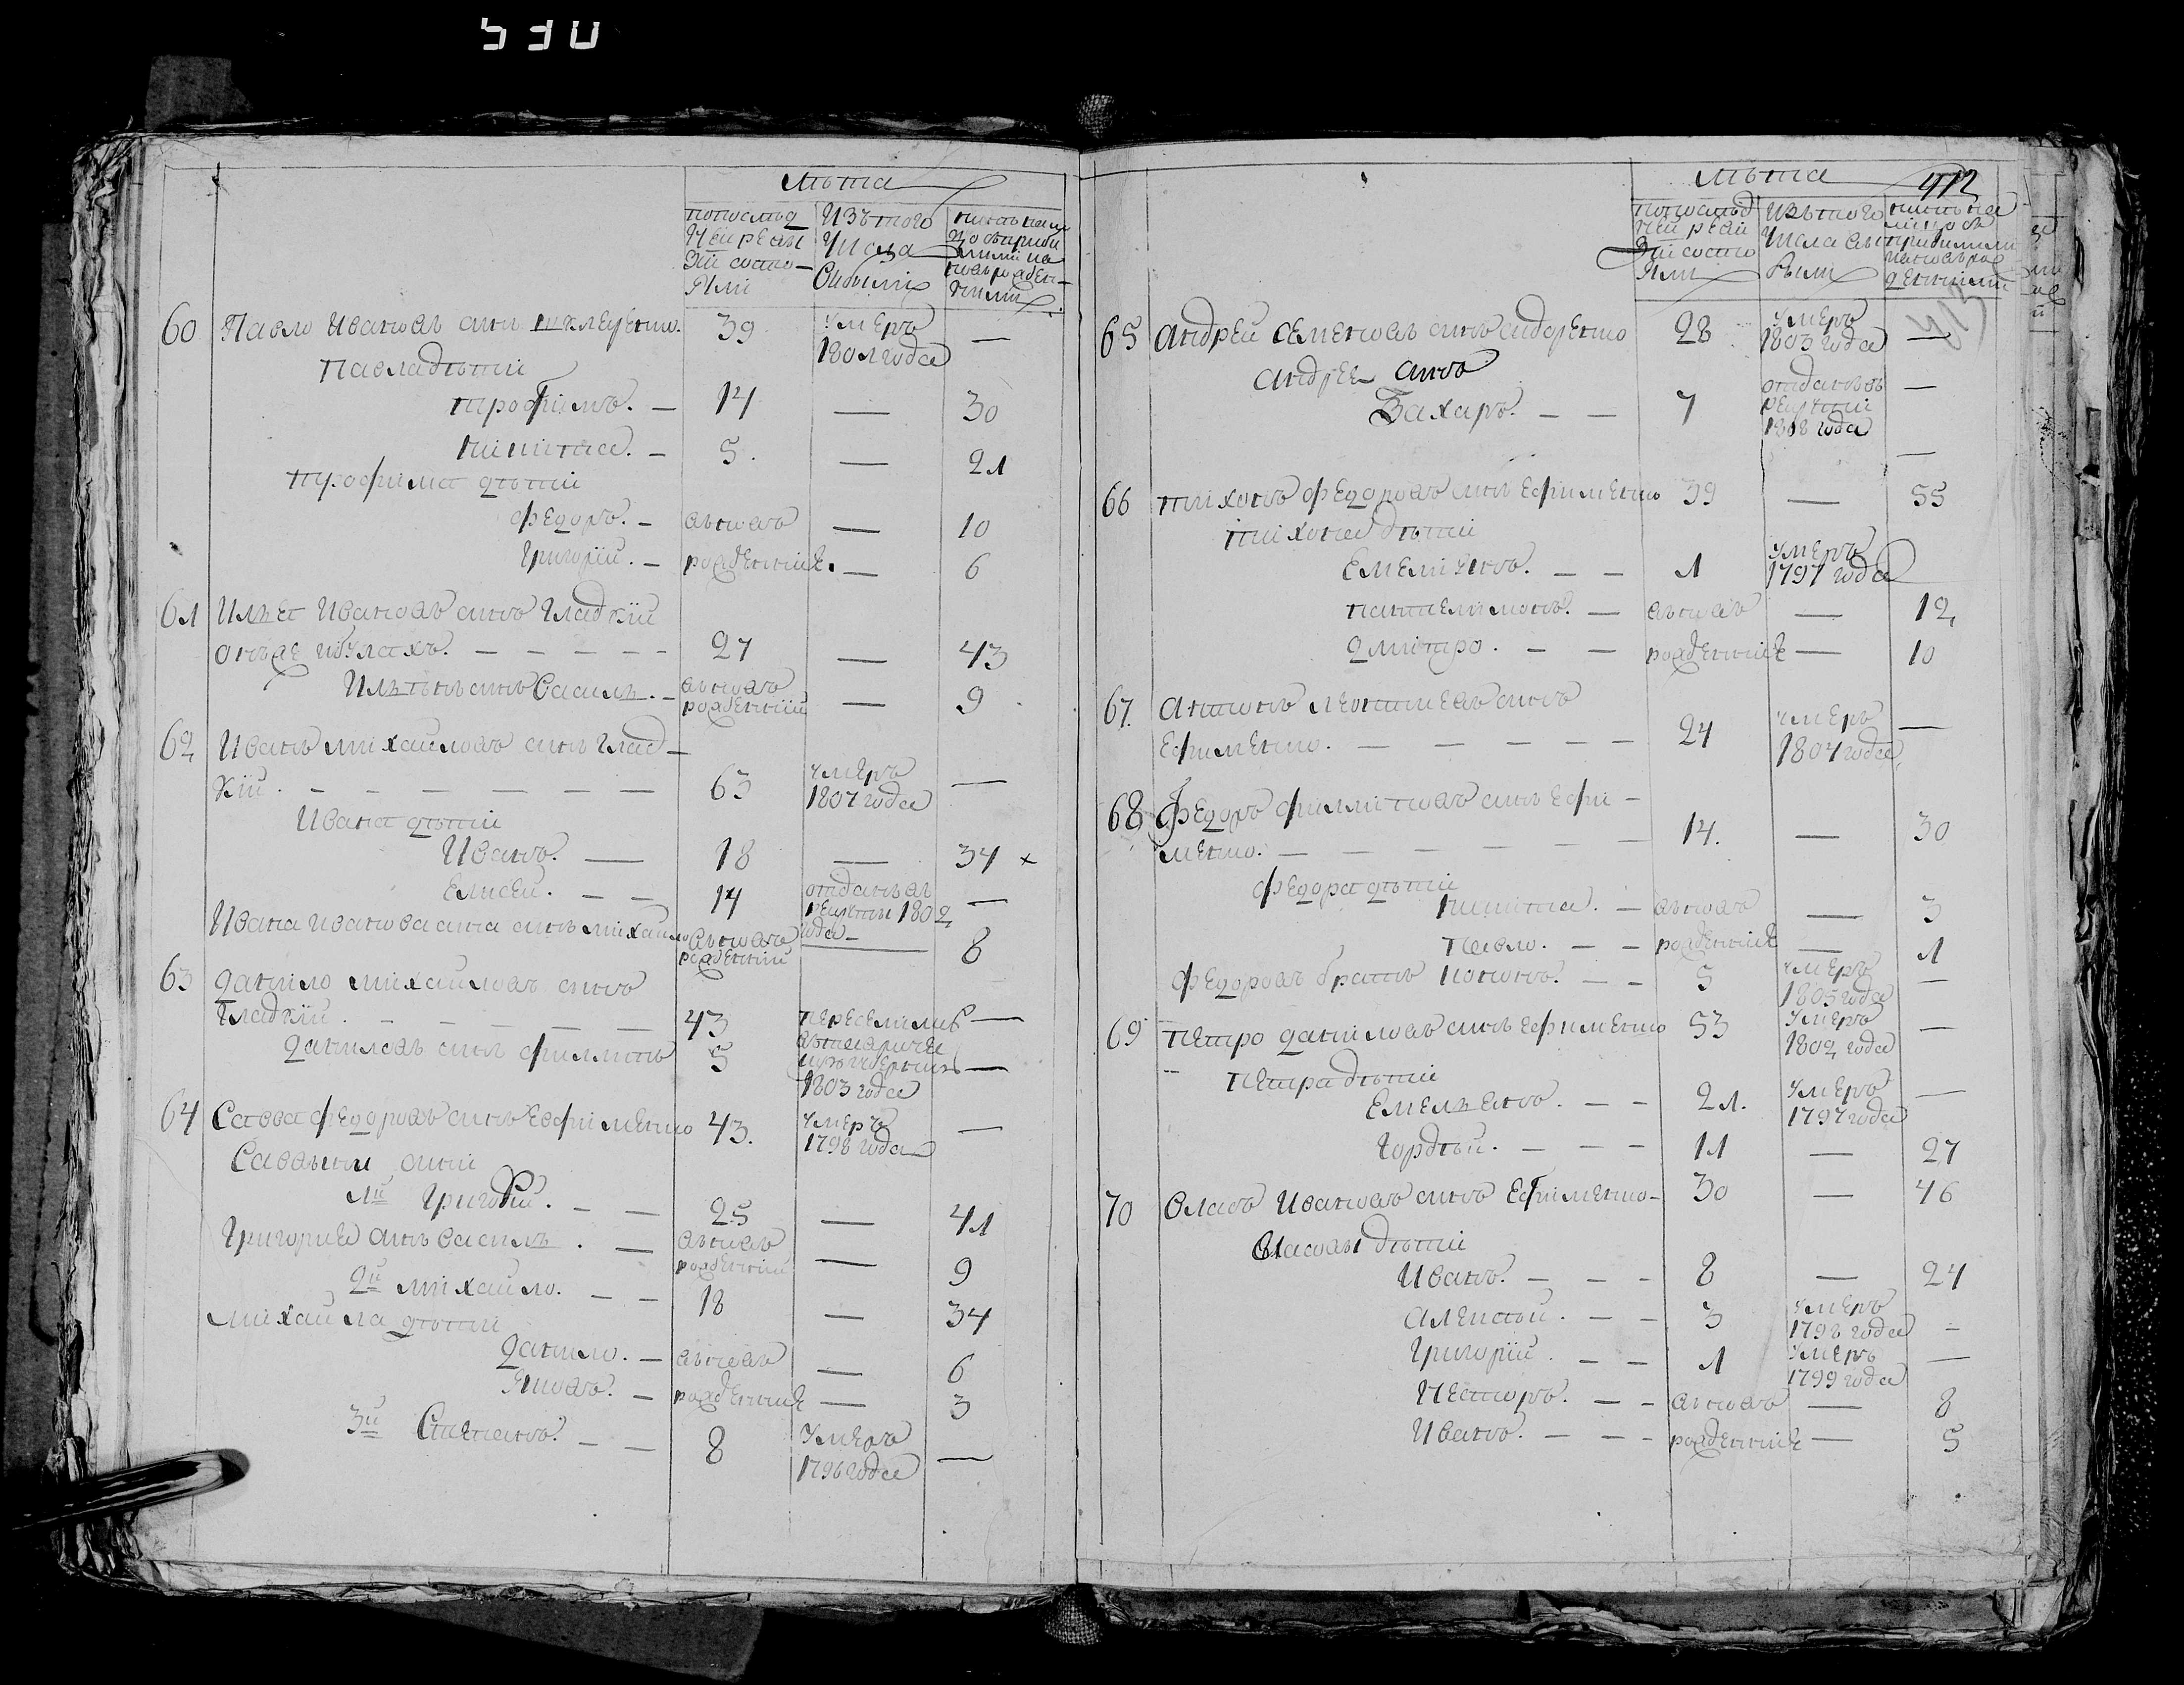 530
лѣта
попослед
ней реви
зіи состо-
яли
изъ того
числа
выбыли
нынѣ налицо съ прибылыми и новорожденными
60 Павло Ивановъ сынъ 39 умеръ —
1801 года
Павла дѣти
Трофимъ. — 14 — 30
Никита. — 5. — 21
Трофима дѣти
Федоръ. — вновь — 10
Григорій. — рожденние. — 6
61 Илья Ивановъ сынъ Гладкій
онъ же — — — — — 27 — 43
Ильинъ сынъ Василь. — вновь
рожденній — 9
62 Иванъ Михайловъ сынъ Глад-
кій. — — — — — — 63 умеръ
1807 года —
Ивана дѣти
Иванъ. — 18 — 34 ×
Елисей. — — 14 отданъ въ
рекруты 1802 —
года
Ивана Иванова сына сынъ Михайло вновь
рожденній — 8
63 Данило Михайловъ сынъ
Гладкій. — — — — — 43 переселились —
Даниловъ сынъ Филиппъ 5 —
1803 года
64 Савва Федоровъ сынъ Ефименко 43. умеръ
1798 года —
Саввины сыни
1й Григорій. — — 25 — 41
Григория сынъ Василь. — вновь
рожденній — 9
2й Михайло. — — 18 — 34
Михайла дѣти
Данило. — вновь — 6
Яковъ. — рожденние — 3
3й Степанъ. — — 8 умеръ
1796 года —
лѣта 412
попослед
ней реви
зіи состо
яли
изъ того
числа вы
были
нынѣ на
лицо съ
прибылыми
и новорож
денними
413
65 Андрей Семеновъ сынъ Сидоренко 28 умеръ
1803 года —
Андрея сынъ
Захаръ. — — 7 отданъ въ
рекруты
1808 года —
—
66 Тихонъ Федоровъ сынъ Ефименко 39 — 55
Тихона дѣти
Емельянъ. — — 1 умеръ
1797 года
Пантелимонъ. — вновь — 12
Дмитро. — — рожденние — 10
67. Антонъ Леонтиевъ сынъ
Ефименко. — — — — — 24 умеръ
1804 года —
68 Федоръ Филиповъ сынъ Ефи-
менко. — — — — — — 14. — 30
Федора дѣти
Никита. — вновь — 3
Павло. — — рожденние — 1
Федоровъ братъ Кононъ. — — 5 умеръ
1805 года —
69 Петро Даниловъ сынъ Ефименко 53 умеръ
1802 года —
Петра дѣти
Емельянъ. — — 21. умеръ
1797 года —
Гордѣй. — — — 11 — 27
70 Власъ Ивановъ сынъ Ефименко — 30 — 46
Власовы дѣти
Иванъ. — — — 8 — 24
Алексѣй. — — 3 умеръ
1798 года —
Григорій. — — 1 умеръ
1799 года —
Несторъ. — — вновь — 8
Иванъ. — — — рожденние — 5